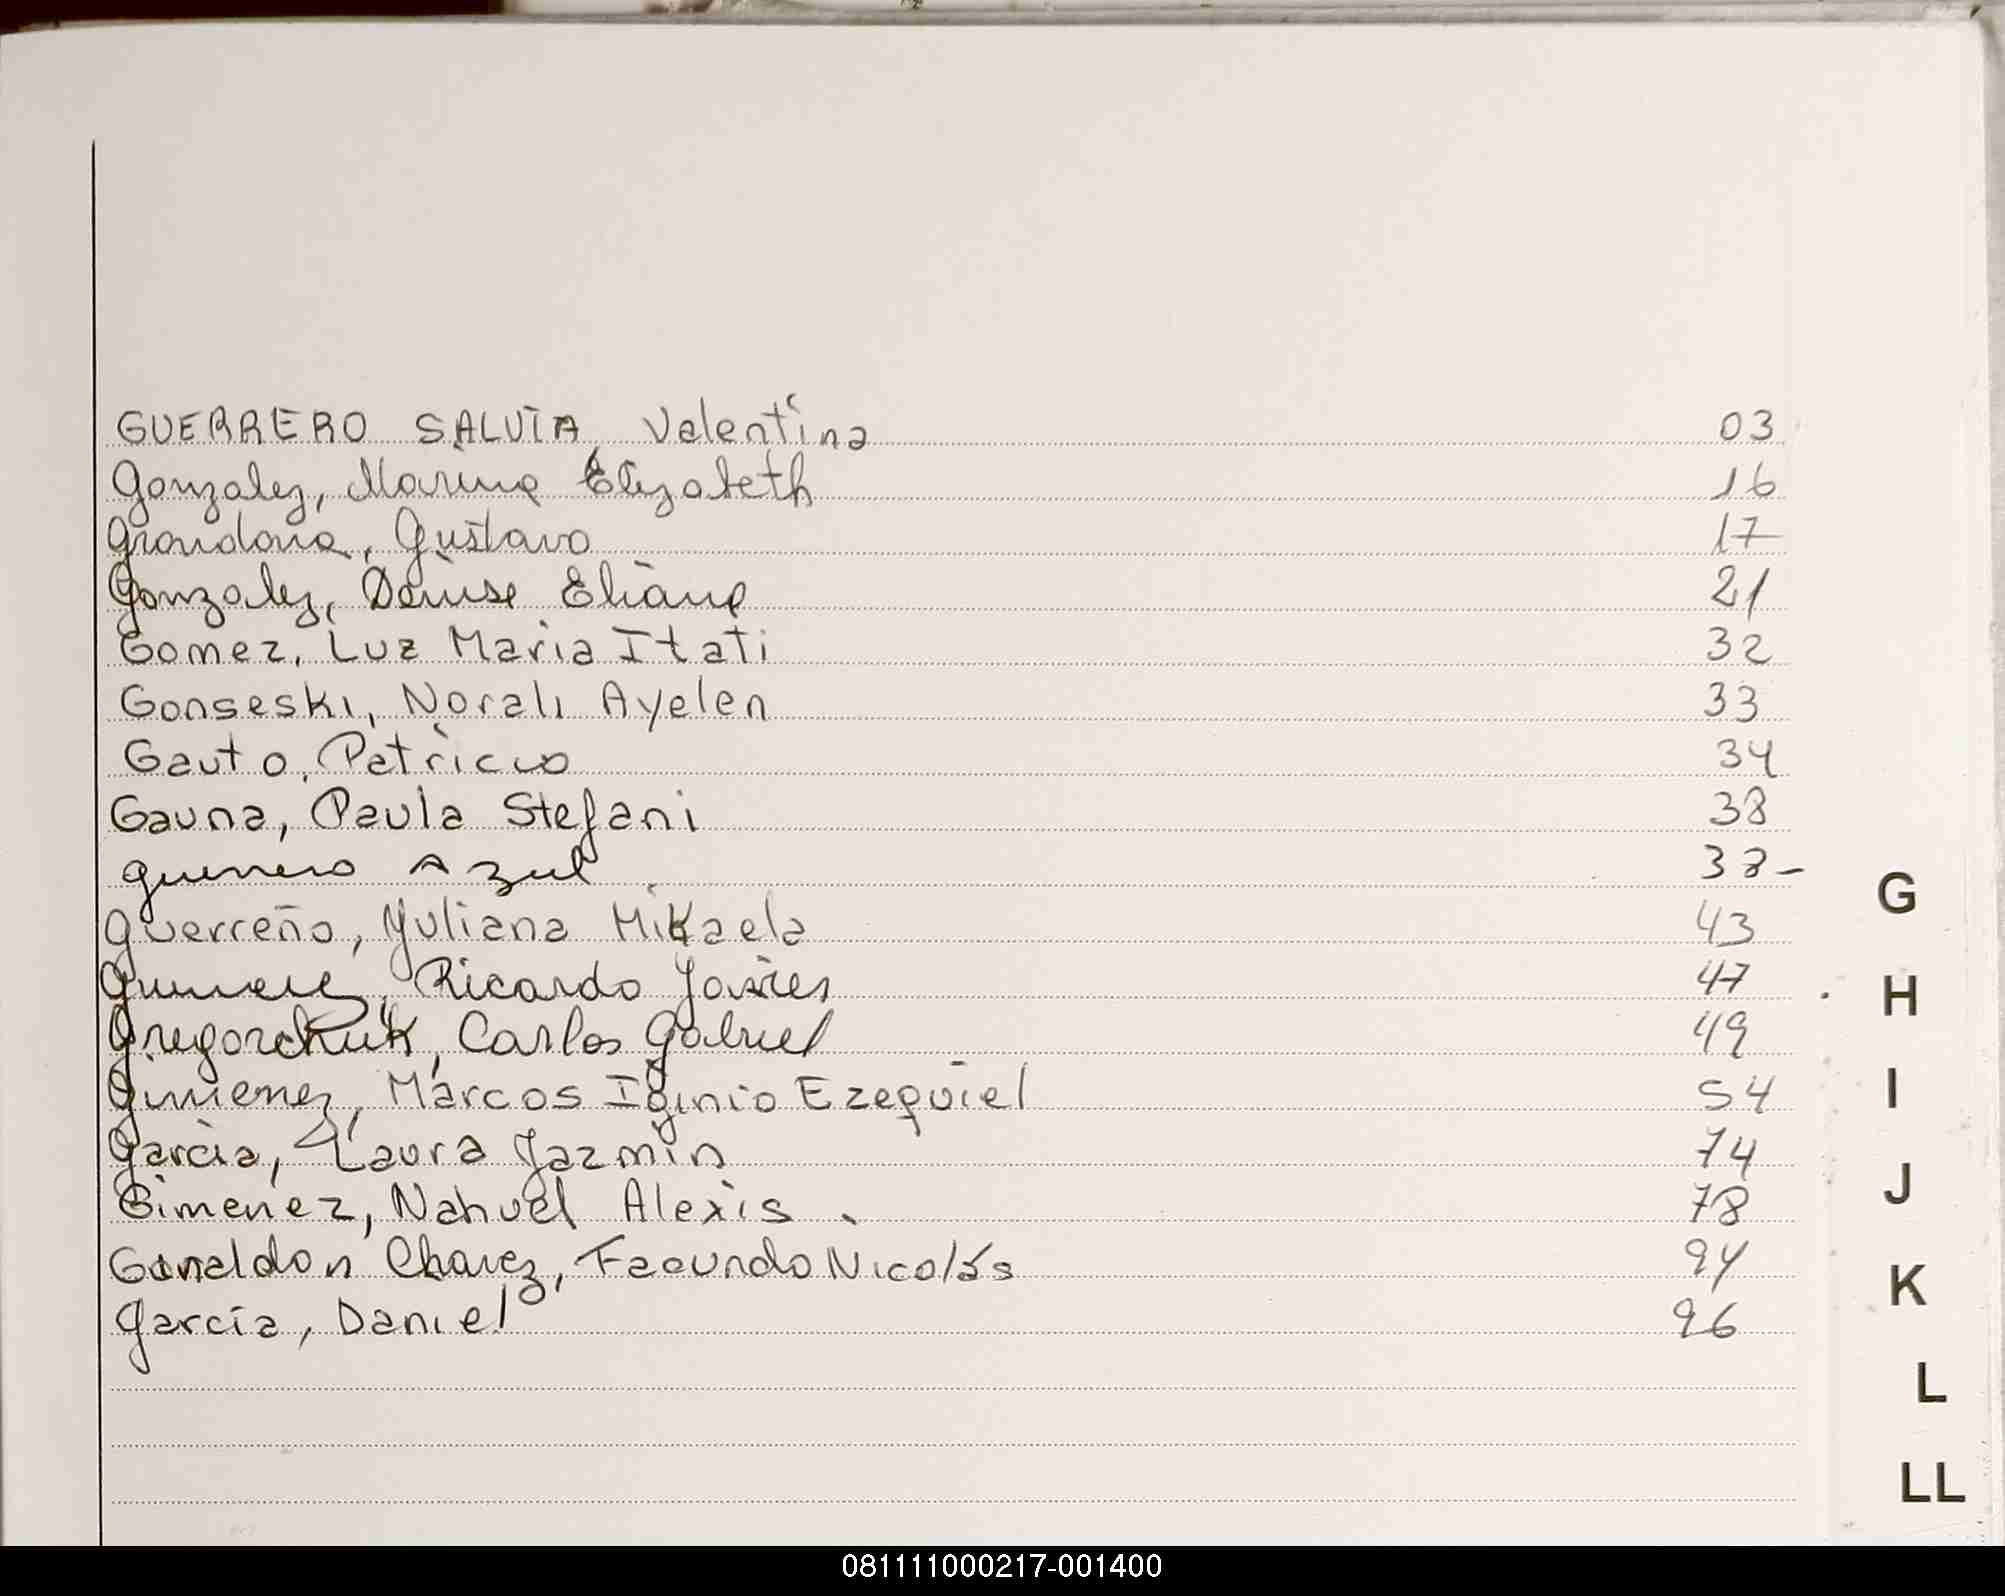 GUERRERO SALVIA, Valentina 03
Gonzalez, Marina Elizabeth 16
Grondona, Gustavo 17
Gonzalez, Denise Eliana 21
Gomez, Luz Maria Itati 32
Gonseski, Norali Ayelen 33
Gauto, Patricio 34
Gauna, Paula Stefani 38
Guerrero Azul 38-
Guerreño, Yuliana Mikaela 43
Ricardo Javier 47
Gregorchuk, Carlos Gabriel 49
Gimenez, Marcos Iginio Ezequiel 54
Garcia, Laura Jazmin 74
Gimenez, Nahuel Alexis 78
Chavez, Facundo Nicolás 94
Garcia, Daniel 96
G
H
I
J
K
L
LL
081111000217-001400